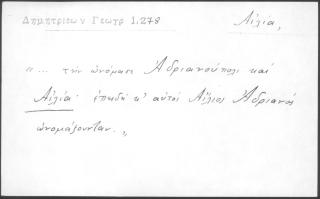 Δημητριεων Γεωγρ 1,278
Αἰλία,
"... τὴν ὠνόμασε Ἀδριανούπολι καὶ
Αἰλία· ἐπειδὴ κ' αὐτοὶ Αἴλιοι Ἀδριανοὶ
ὠνομάζουνταν."